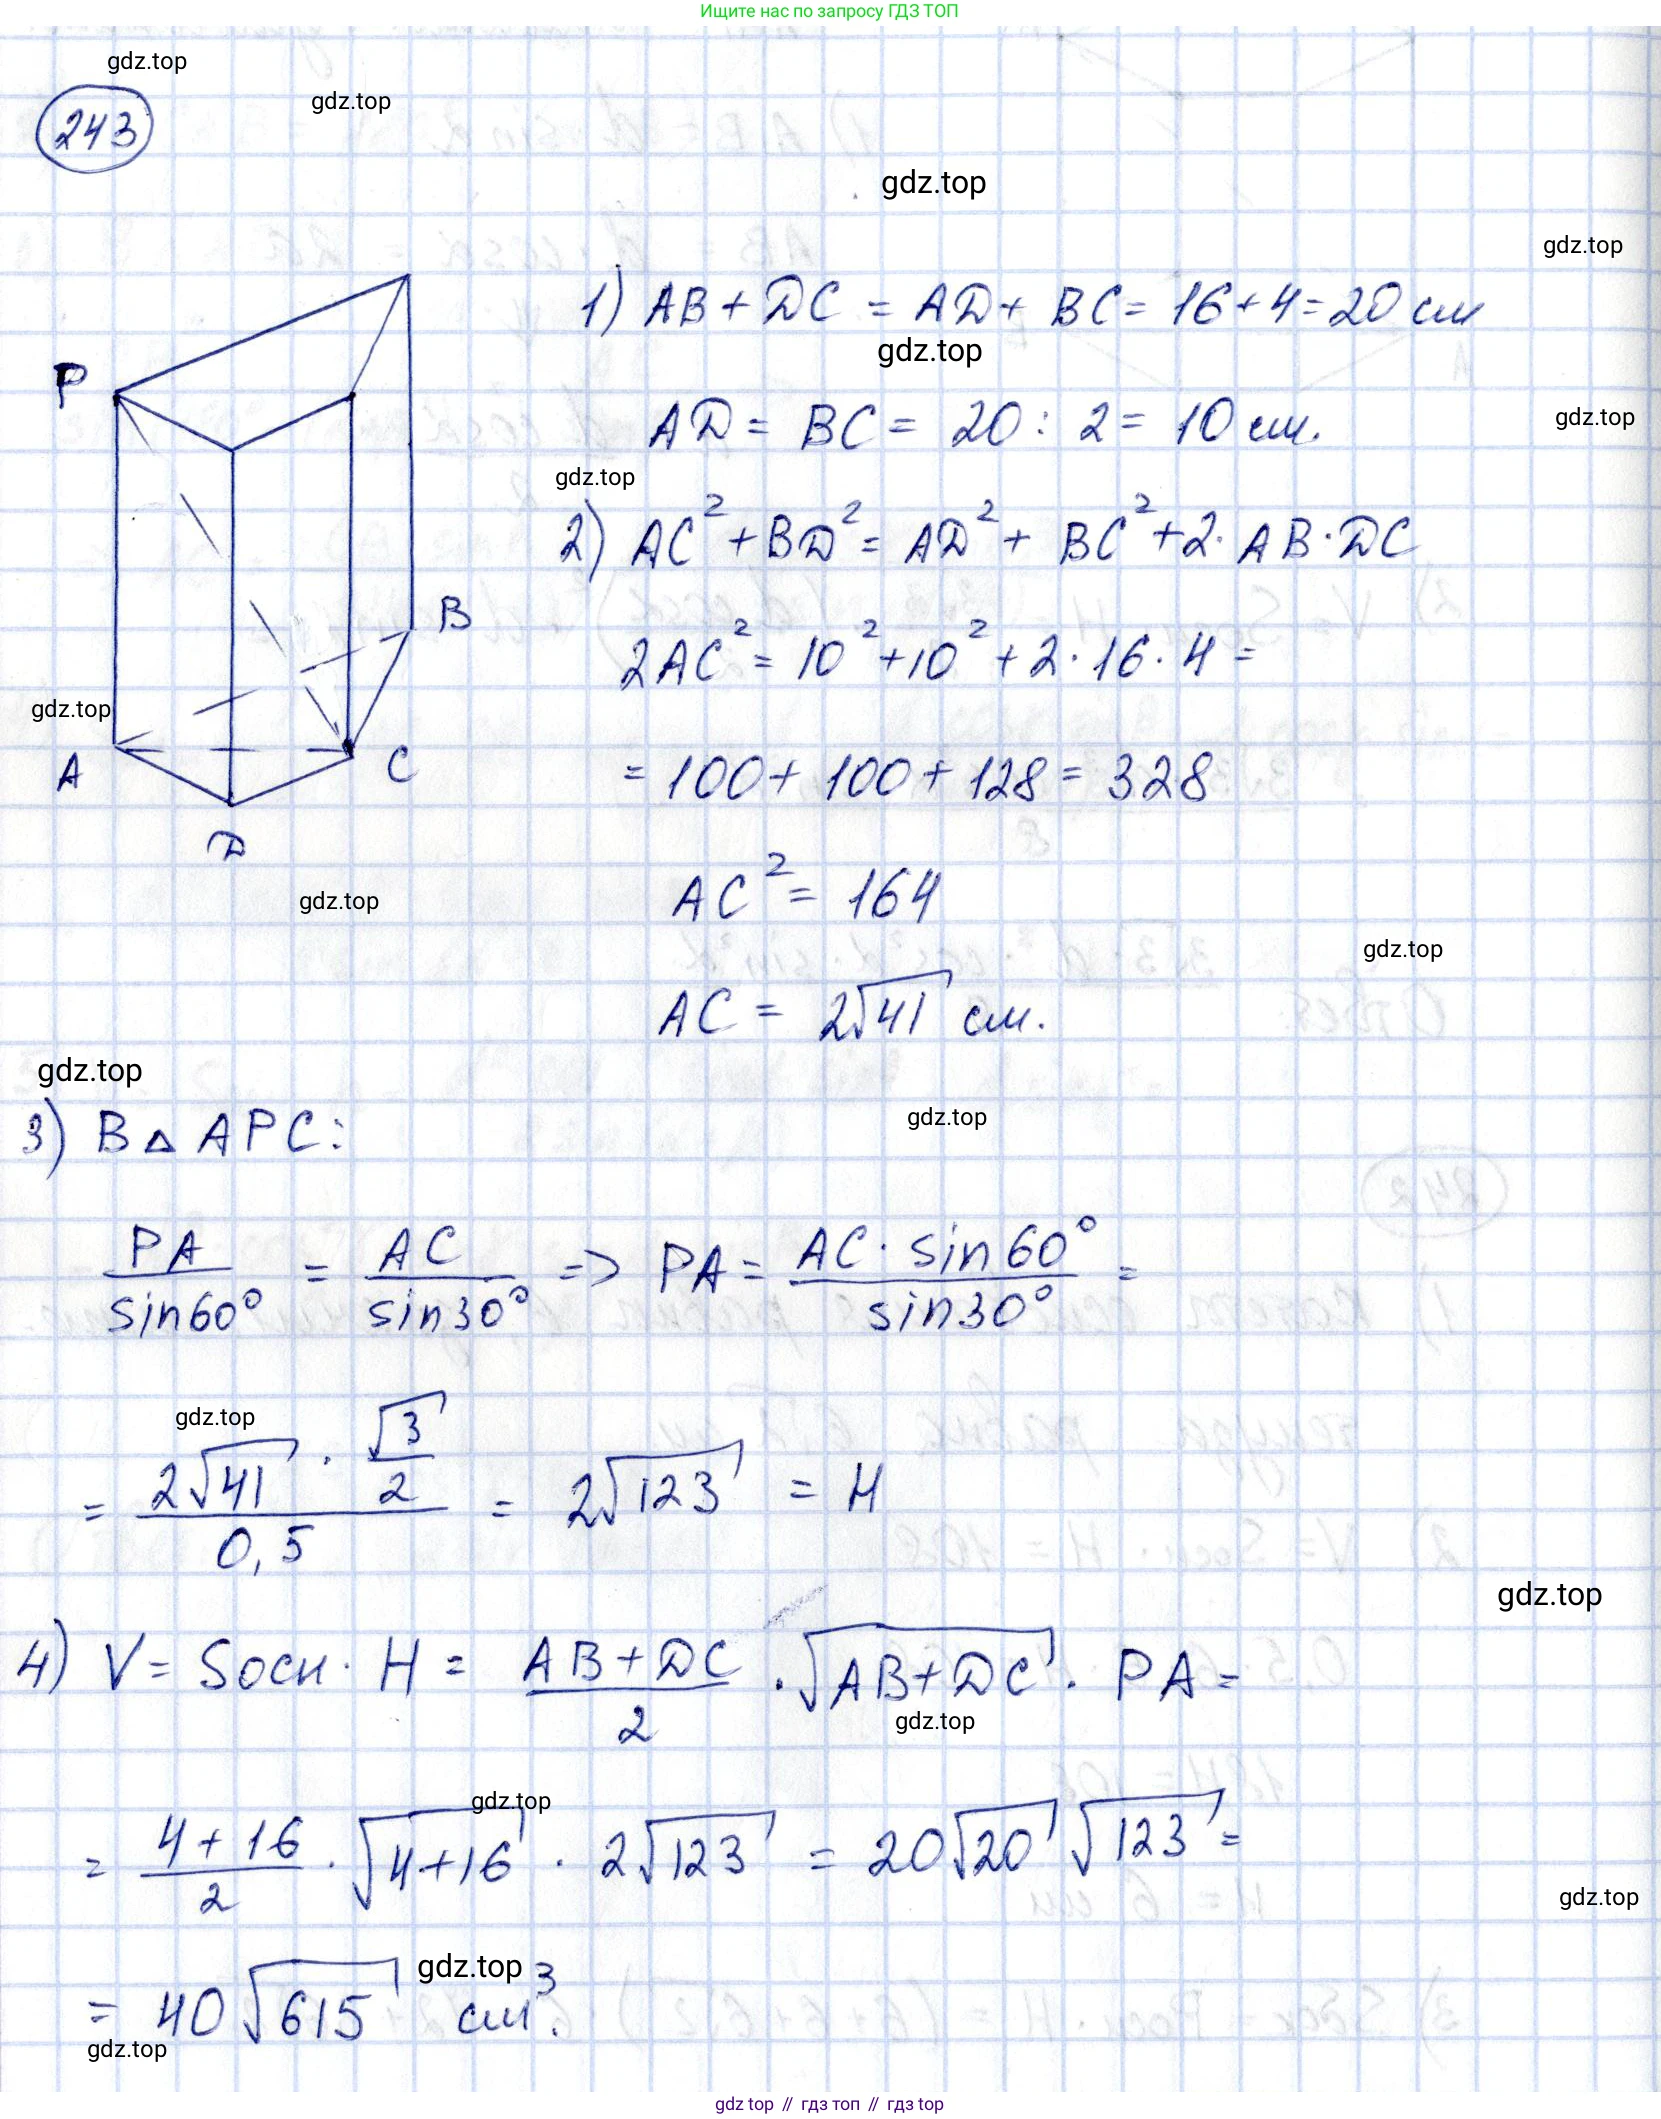 Ищите нас по запросу ГДЗ ТОП
gdz.top
gdz.top
243
gdz.top
gdz.top
1) AB + DC = AD + BC = 16 + 4 = 20 см
gdz.top
P
AD = BC = 20 : 2 = 10 см.
gdz.top
gdz.top
2) AC² + BD² = AD² + BC² + 2 · AB · DC
B
2AC² = 10² + 10² + 2 · 16 · 4 =
gdz.top
A
C
= 100 + 100 + 128 = 328
D
gdz.top
AC² = 164
gdz.top
AC = 2√41 см.
gdz.top
gdz.top
3) В △ APC:
PA/sin60° = AC/sin30° => PA = AC · sin60°/sin30° =
gdz.top
= 2√41 · √3/2 / 0,5 = 2√123 = H
gdz.top
4) V = Sосн · H = AB + DC/2 · √AB + DC · PA =
gdz.top
gdz.top
= 4 + 16/2 · √4 + 16 · 2√123 = 20√20 √123 =
gdz.top
gdz.top
= 40√615 см³.
gdz.top
gdz top // гдз топ // гдз top